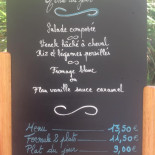 Menu du jour
Salade composée
Steack hâché à cheval
Riz et légumes persillés
Fromage blanc
ou
Flan vanille sauce caramel
Menu → 13,50 €
Formule 2 plats → 11,50 €
Plat du jour → 9,00 €